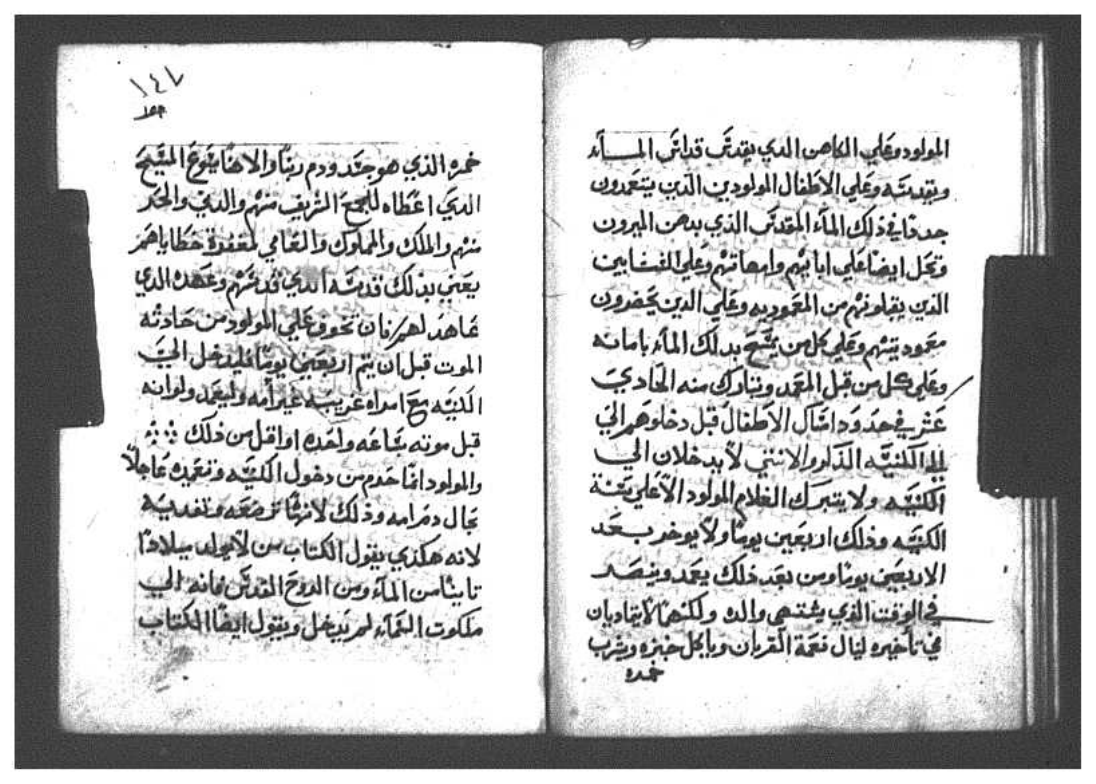 المولود وعلي الكاهن الدي يقدس قداس المـــاء
ويقدسه وعلي الاطفال المولودين الذين يتعمدون
جددا في ذلك الماء المقدس الذي بدهن الميرون
وتحل ايضا علي ابايهم وامهاتهم وعلي
الذين يقبلونهم من المعموديه وعلي الدين يحضرون
معموديتهم وعلي كل من يمسح بدلك الماء بامانه
وعلي كل من قبل المعمد وتبارك منه الحادي
عشر في حدود امثال الاطفال قبل دخولهم الي
الكنيسه الذكر والانثي لا يدخلان الي
الكنيسه ولا يتبرك الغلام المولود الا علي
الكنيسه وذلك اربعين يوما ولا يوخر بعد
الاربعين يوما ومن بعد ذلك يعمد وينصر
في الوقت الذي يشتهي والده ولكنهما لا يتماديان
في تأخيره لينال نعمة القربان وياكل خبزه ويشرب
خمره
١٤٧
خمره الذي هو جسد ودم ربنا والاهنا يسوع المسيح
الدي اعطاه للجمع الشريف منهم والدني والحر
منهم والملك والمملوك والعامي لمغفرة خطاياهم
يعني بدلك قديسه الدي قدسهم وعهده الدي
عاهد لهم فان تخوف علي المولود من حادثه
الموت قبل ان يتم اربعين يوما فليدخل الي
الكنيسه مع امراه غريبه غير امه وليعمد ولوانه
قبل موته بساعه واحده او اقل من ذلك
والمولود انما حرم من دخول الكنيسه وتعميده عاجلا
بحال دم امه وذلك لانها ترضعه وتغديه
لانه هكذي يقول الكتاب من لا يولد ميلادا
تانيا من الماء ومن الروح القدس فانه الي
ملكوت السماء لم يدخل ويقول ايضا الكتاب